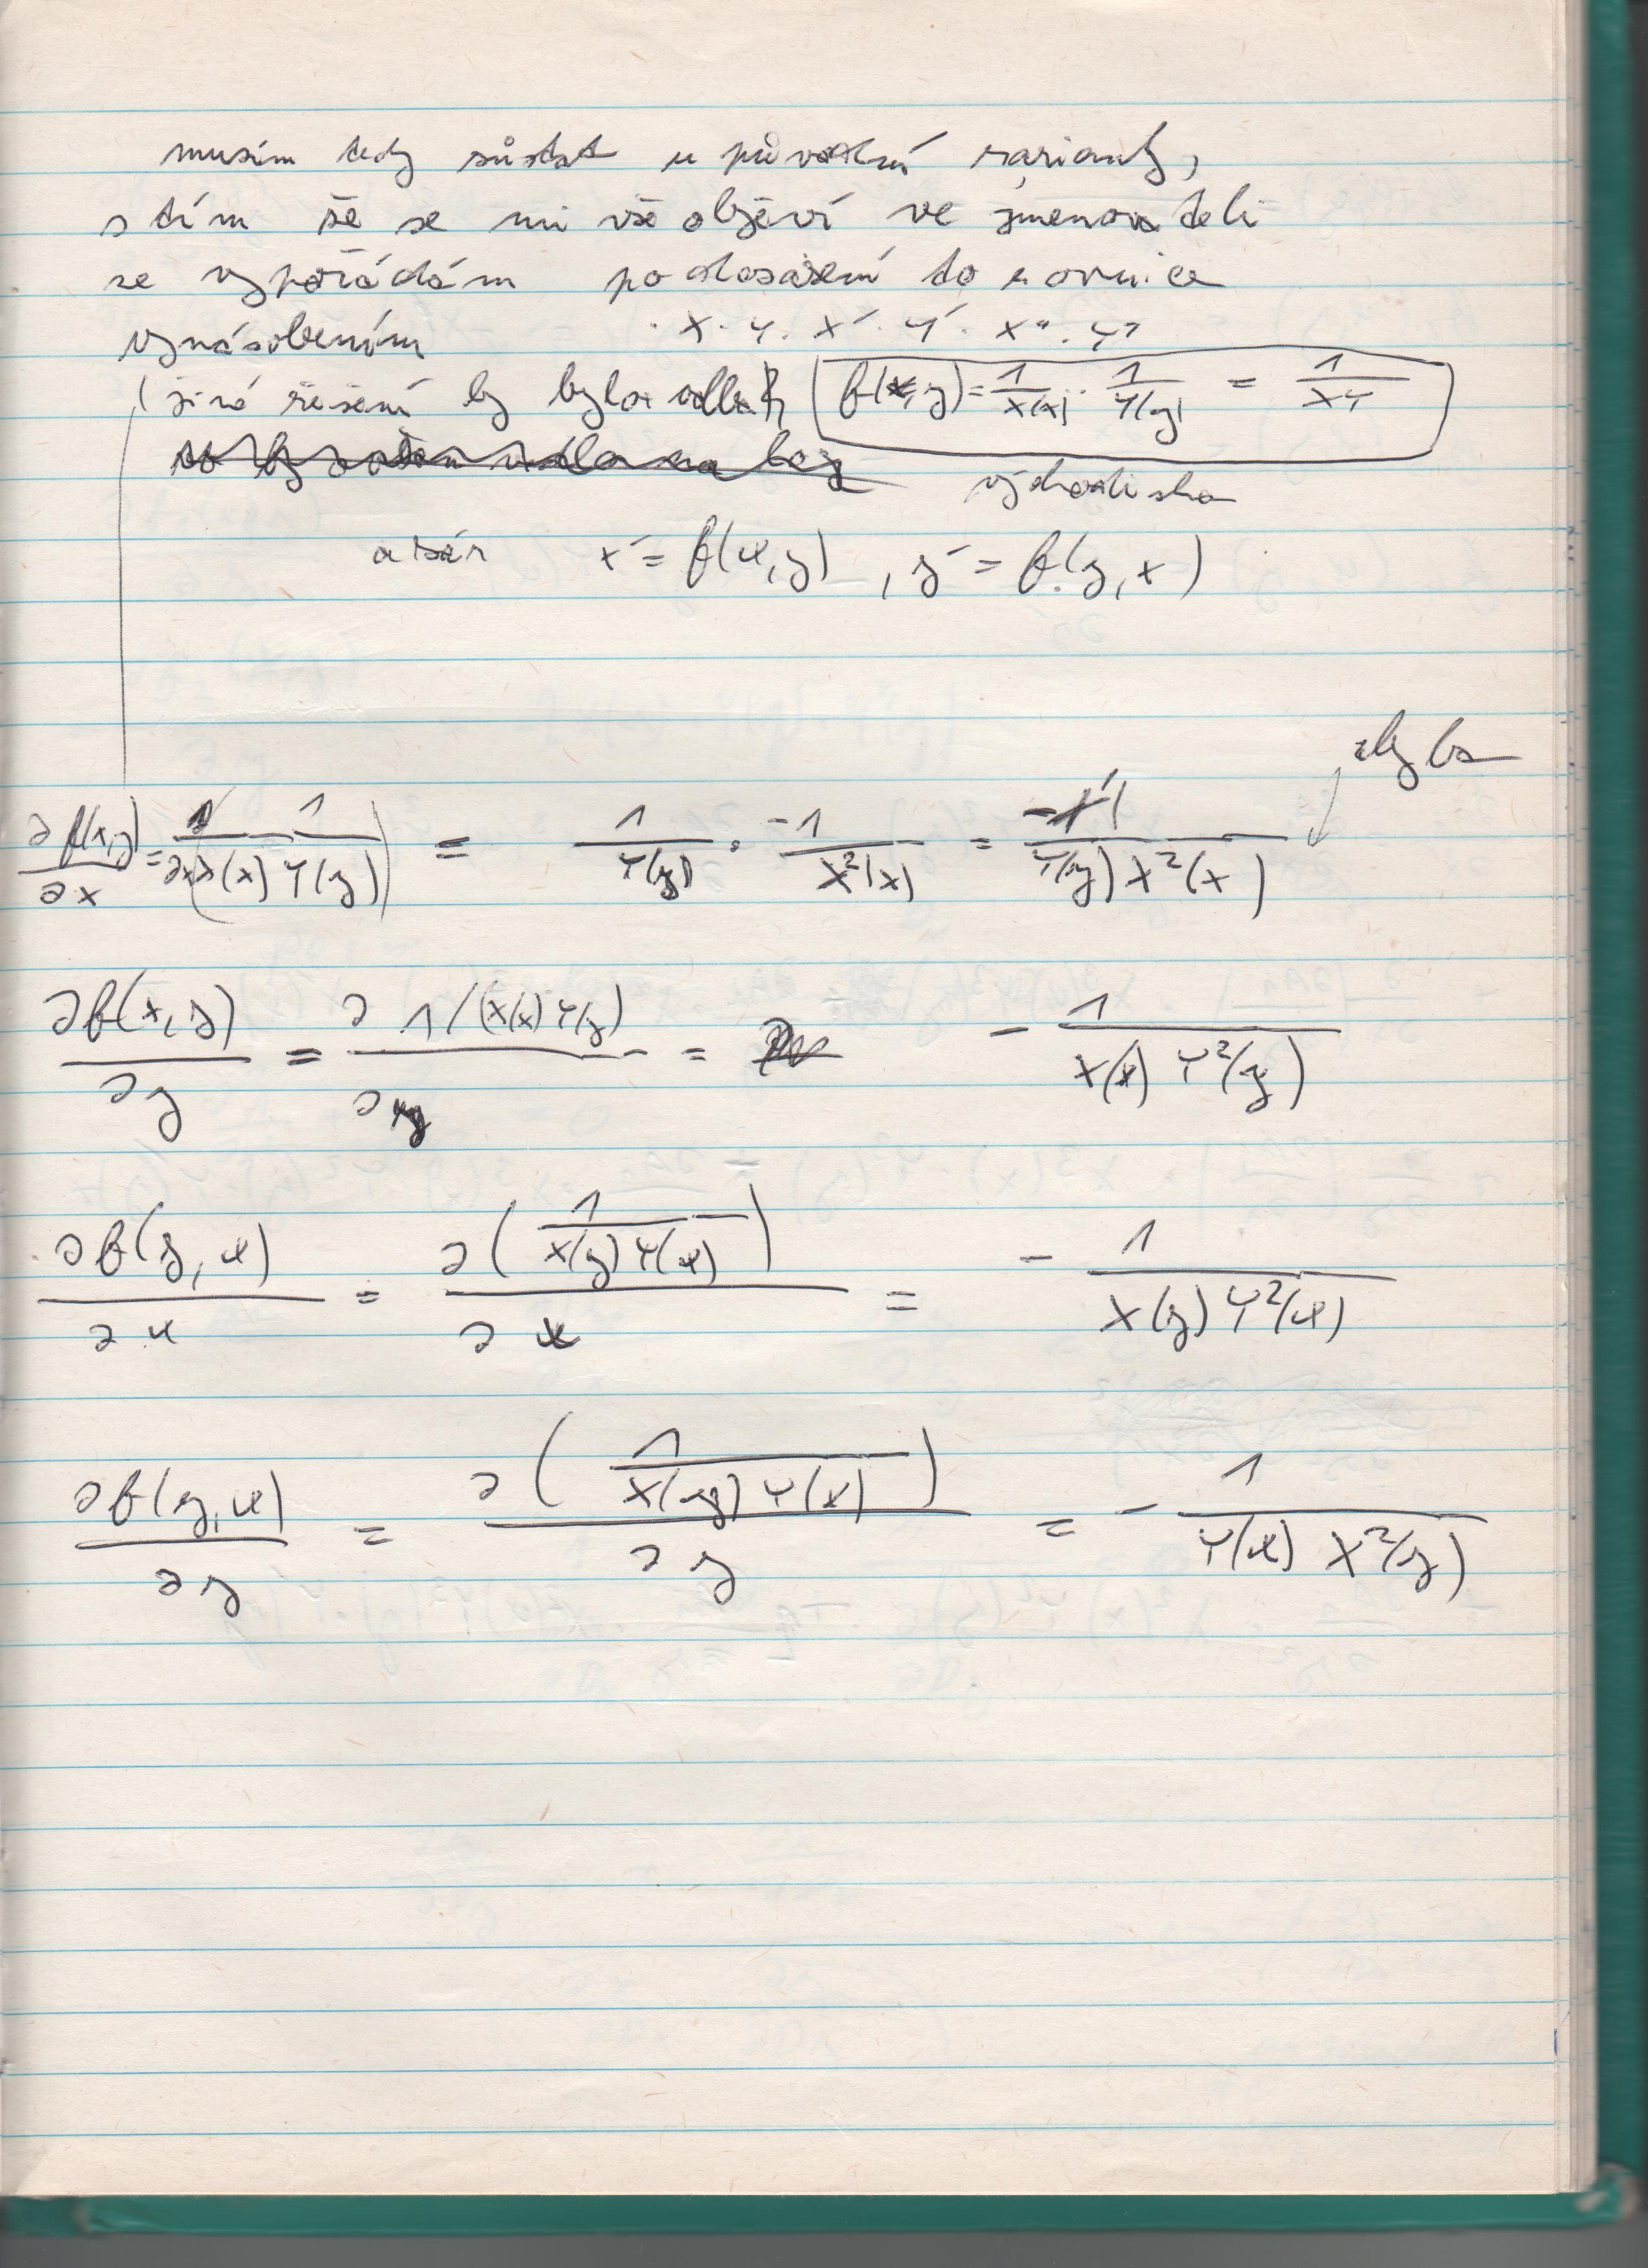 musím tedy zůstat u původní varianty,
s tím že se mi vše objeví ve jmenovateli
se vypořádám po dosazení do rovnice
vynásobením · X · Y · X' · Y' · X" · Y"
(jiné řešení by bylo f(x,y) = 1/X(x) · 1/Y(y) = 1/XY
východiska
x' = f(x,y) , y' = f(y,x)
chyba
∂f(x,y)/∂x = ∂/∂x (1/(X(x) Y(y))) = 1/Y(y) · -1/X²(x) = -1/(Y(y) X²(x))
∂f(x,y)/∂y = ∂ 1/(X(x) Y(y)) / ∂y = - 1/(X(x) Y²(y))
∂f(y,x)/∂x = ∂(1/(X(y) Y(x)))/∂x = - 1/(X(y) Y²(x))
∂f(y,x)/∂y = ∂(1/(X(y) Y(x)))/∂y = - 1/(Y(x) X²(y))